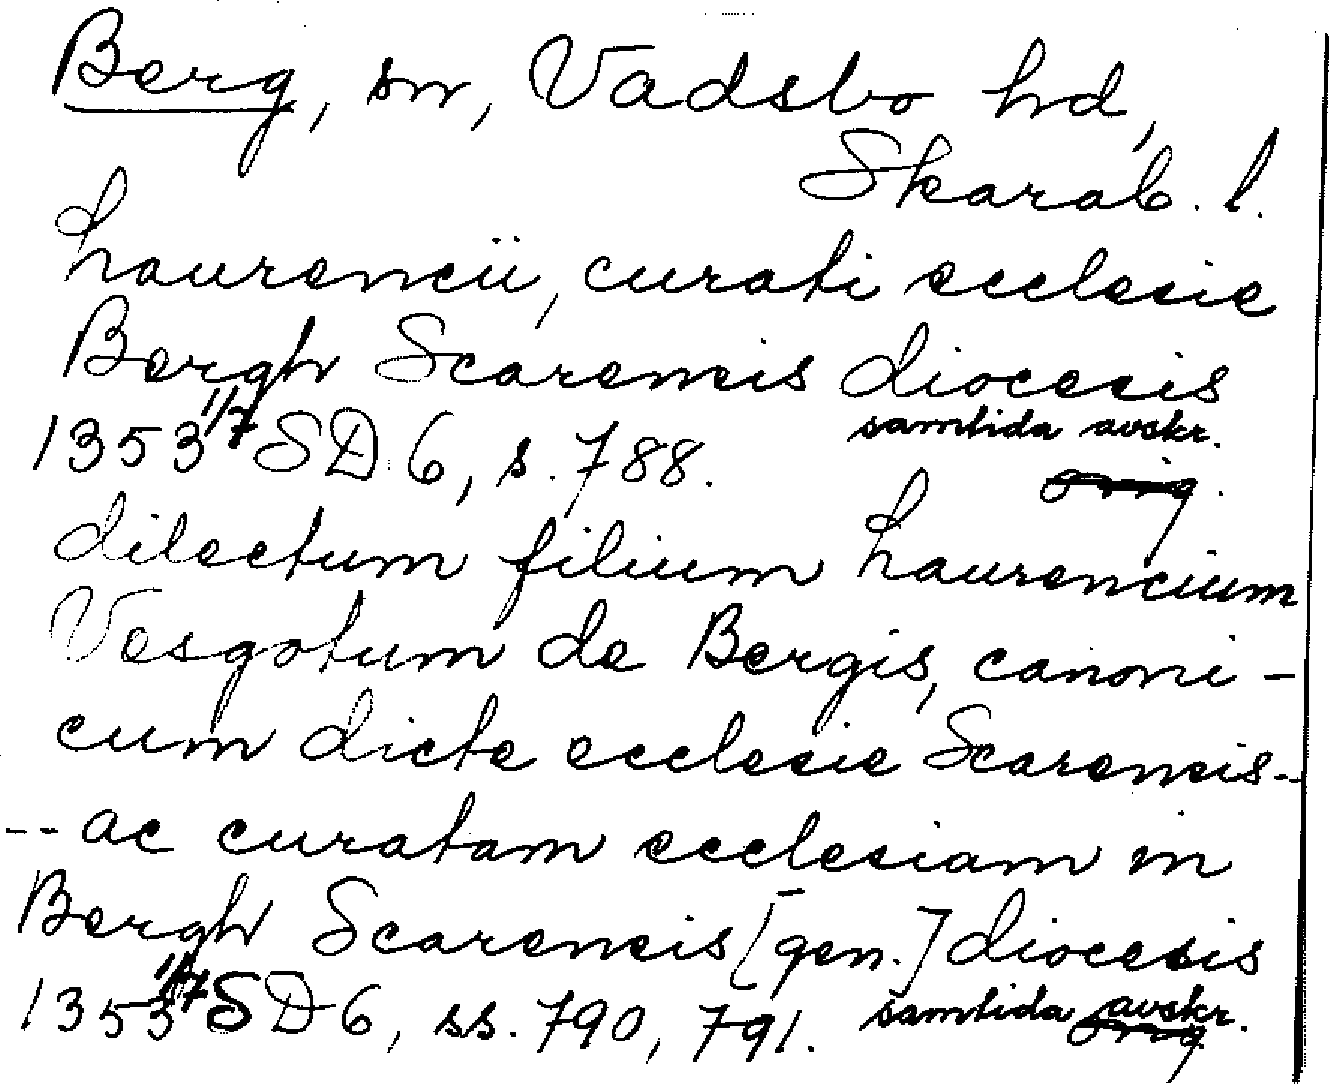 Berg, sn, Vadsbo hd,
Skarab. l.
Laurencii, curati ecclesie
Bergh Scarensis diocesis
1353 1/7 SD 6, s. 788. samtida avskr.
orig.
dilectum filium Laurencium
Vesgotum de Bergis, canoni-
cum dicte ecclesie Scarensis --
-- ac curatam ecclesiam in
Bergh Scarensis [gen.] diocesis
1353 1/7 SD 6, ss. 790, 791. samtida avskr.
orig.